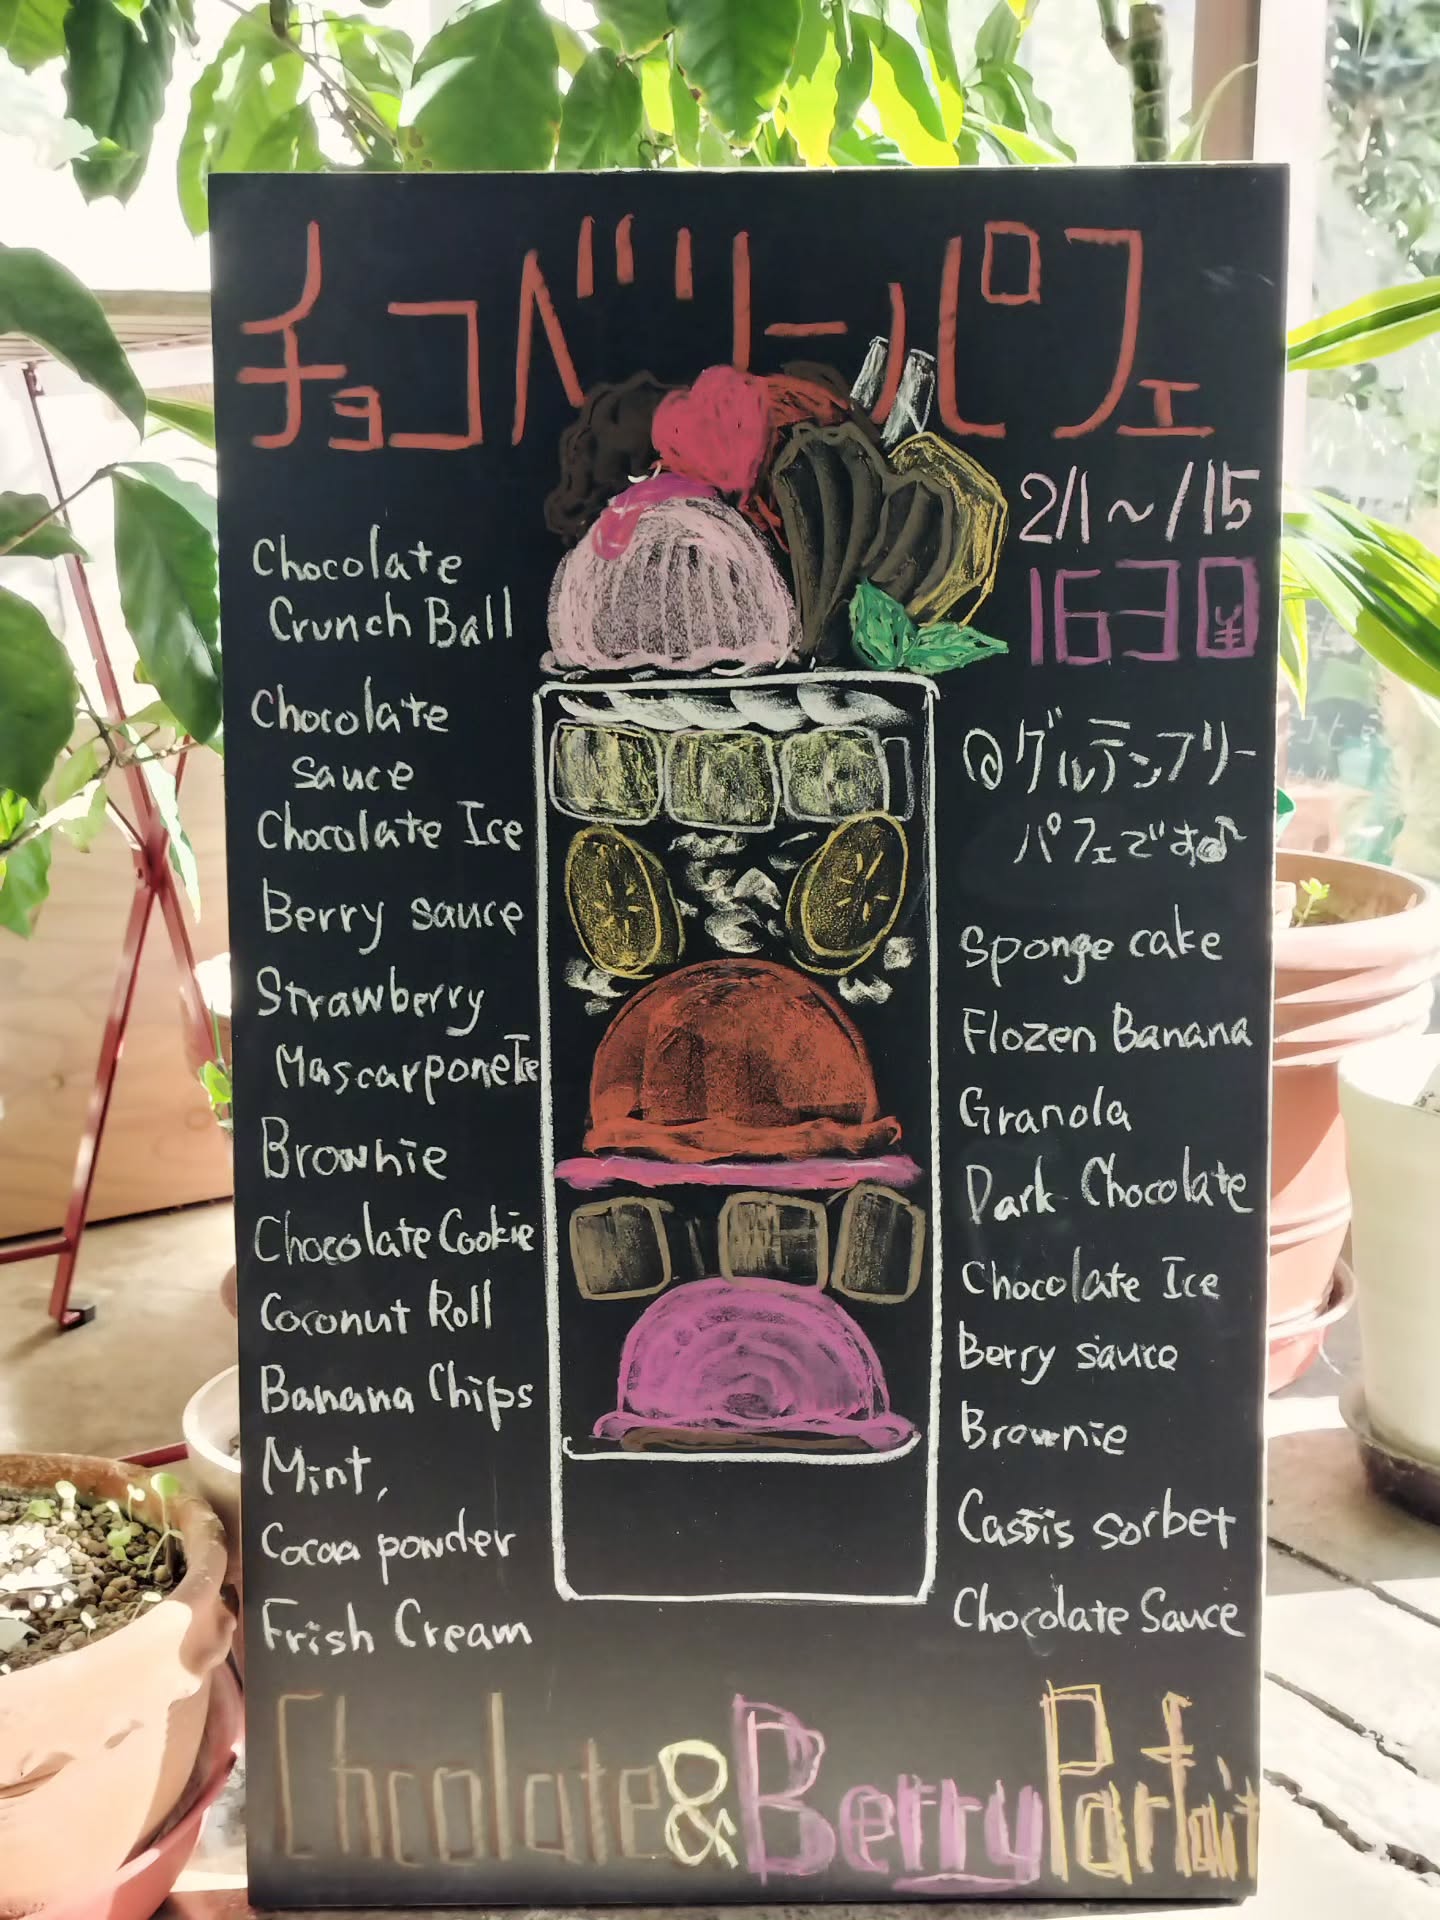 チョコベリーパフェ
2/1〜/15
1630¥
Chocolate
Crunch Ball
Chocolate
sauce
Chocolate Ice
Berry sauce
Strawberry
Mascarpone Ice
Brownie
Chocolate Cookie
Coconut Roll
Banana Chips
Mint,
Cocoa powder
Frish Cream
◎グルテンフリー
パフェです♪
Sponge cake
Flozen Banana
Granola
Dark Chocolate
Chocolate Ice
Berry sauce
Brownie
Cassis sorbet
Chocolate Sauce
Chcolate & Berry Parfait